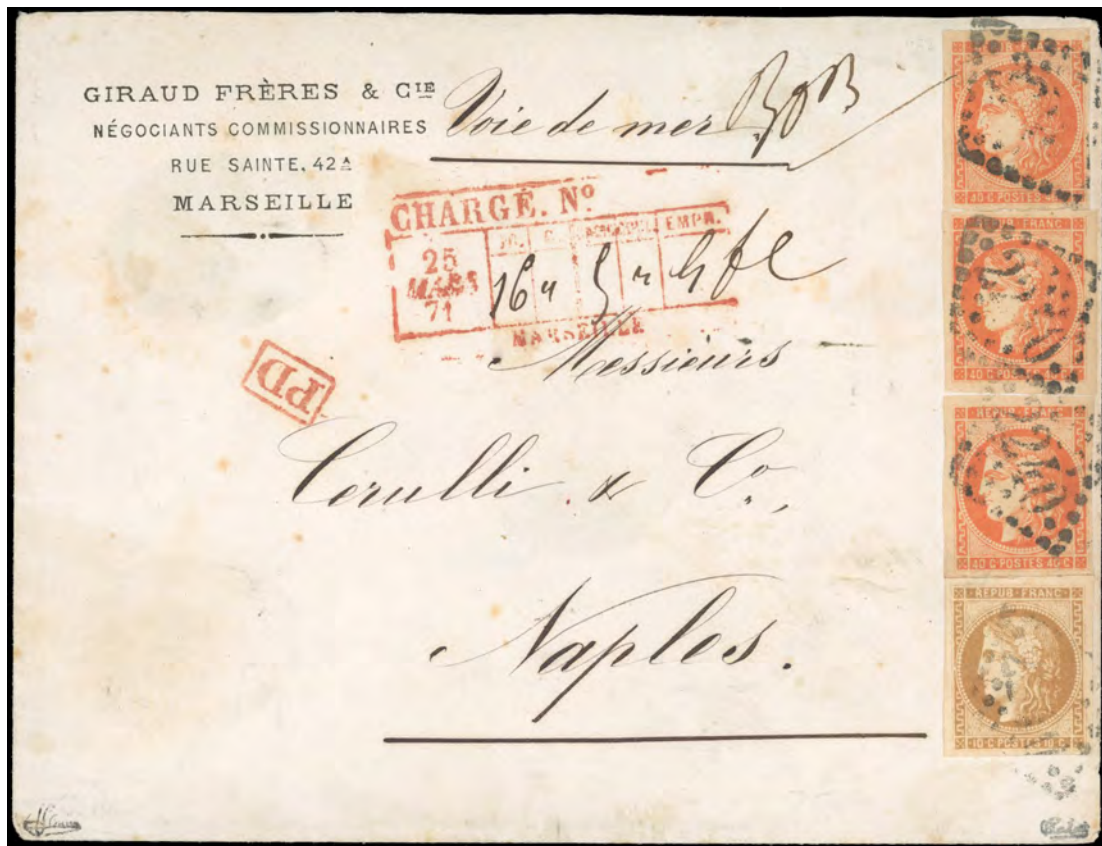 GIRAUD FRÈRES & CIE
NÉGOCIANTS COMMISSIONNAIRES
RUE SAINTE, 42A
MARSEILLE
Voie de mer
CHARGÉ. Nº
EMPR.
25
MARS
71
16
5
MARSEILLE
PD
Messieurs
Cerulli & Co,
Naples.
40 C POSTES 40 C
REPUB FRANC
40 C POSTES 40 C
REPUB FRANC
2240
40 C POSTES 40 C
REPUB FRANC
10 C POSTES 10 C